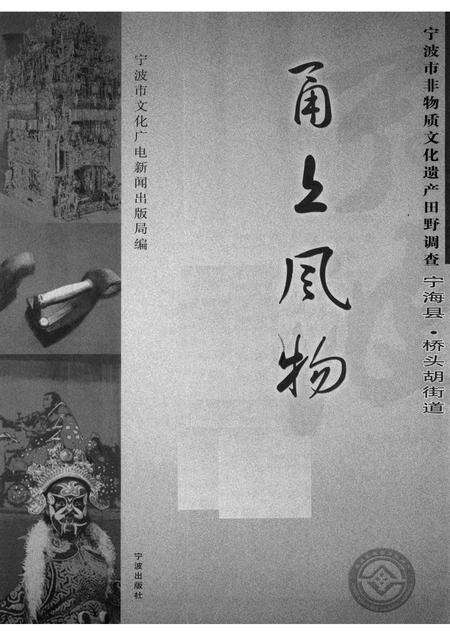 宁波市非物质文化遗产田野调查
宁海县·桥头胡街道
甬上风物
宁波市文化广电新闻出版局编
宁波出版社